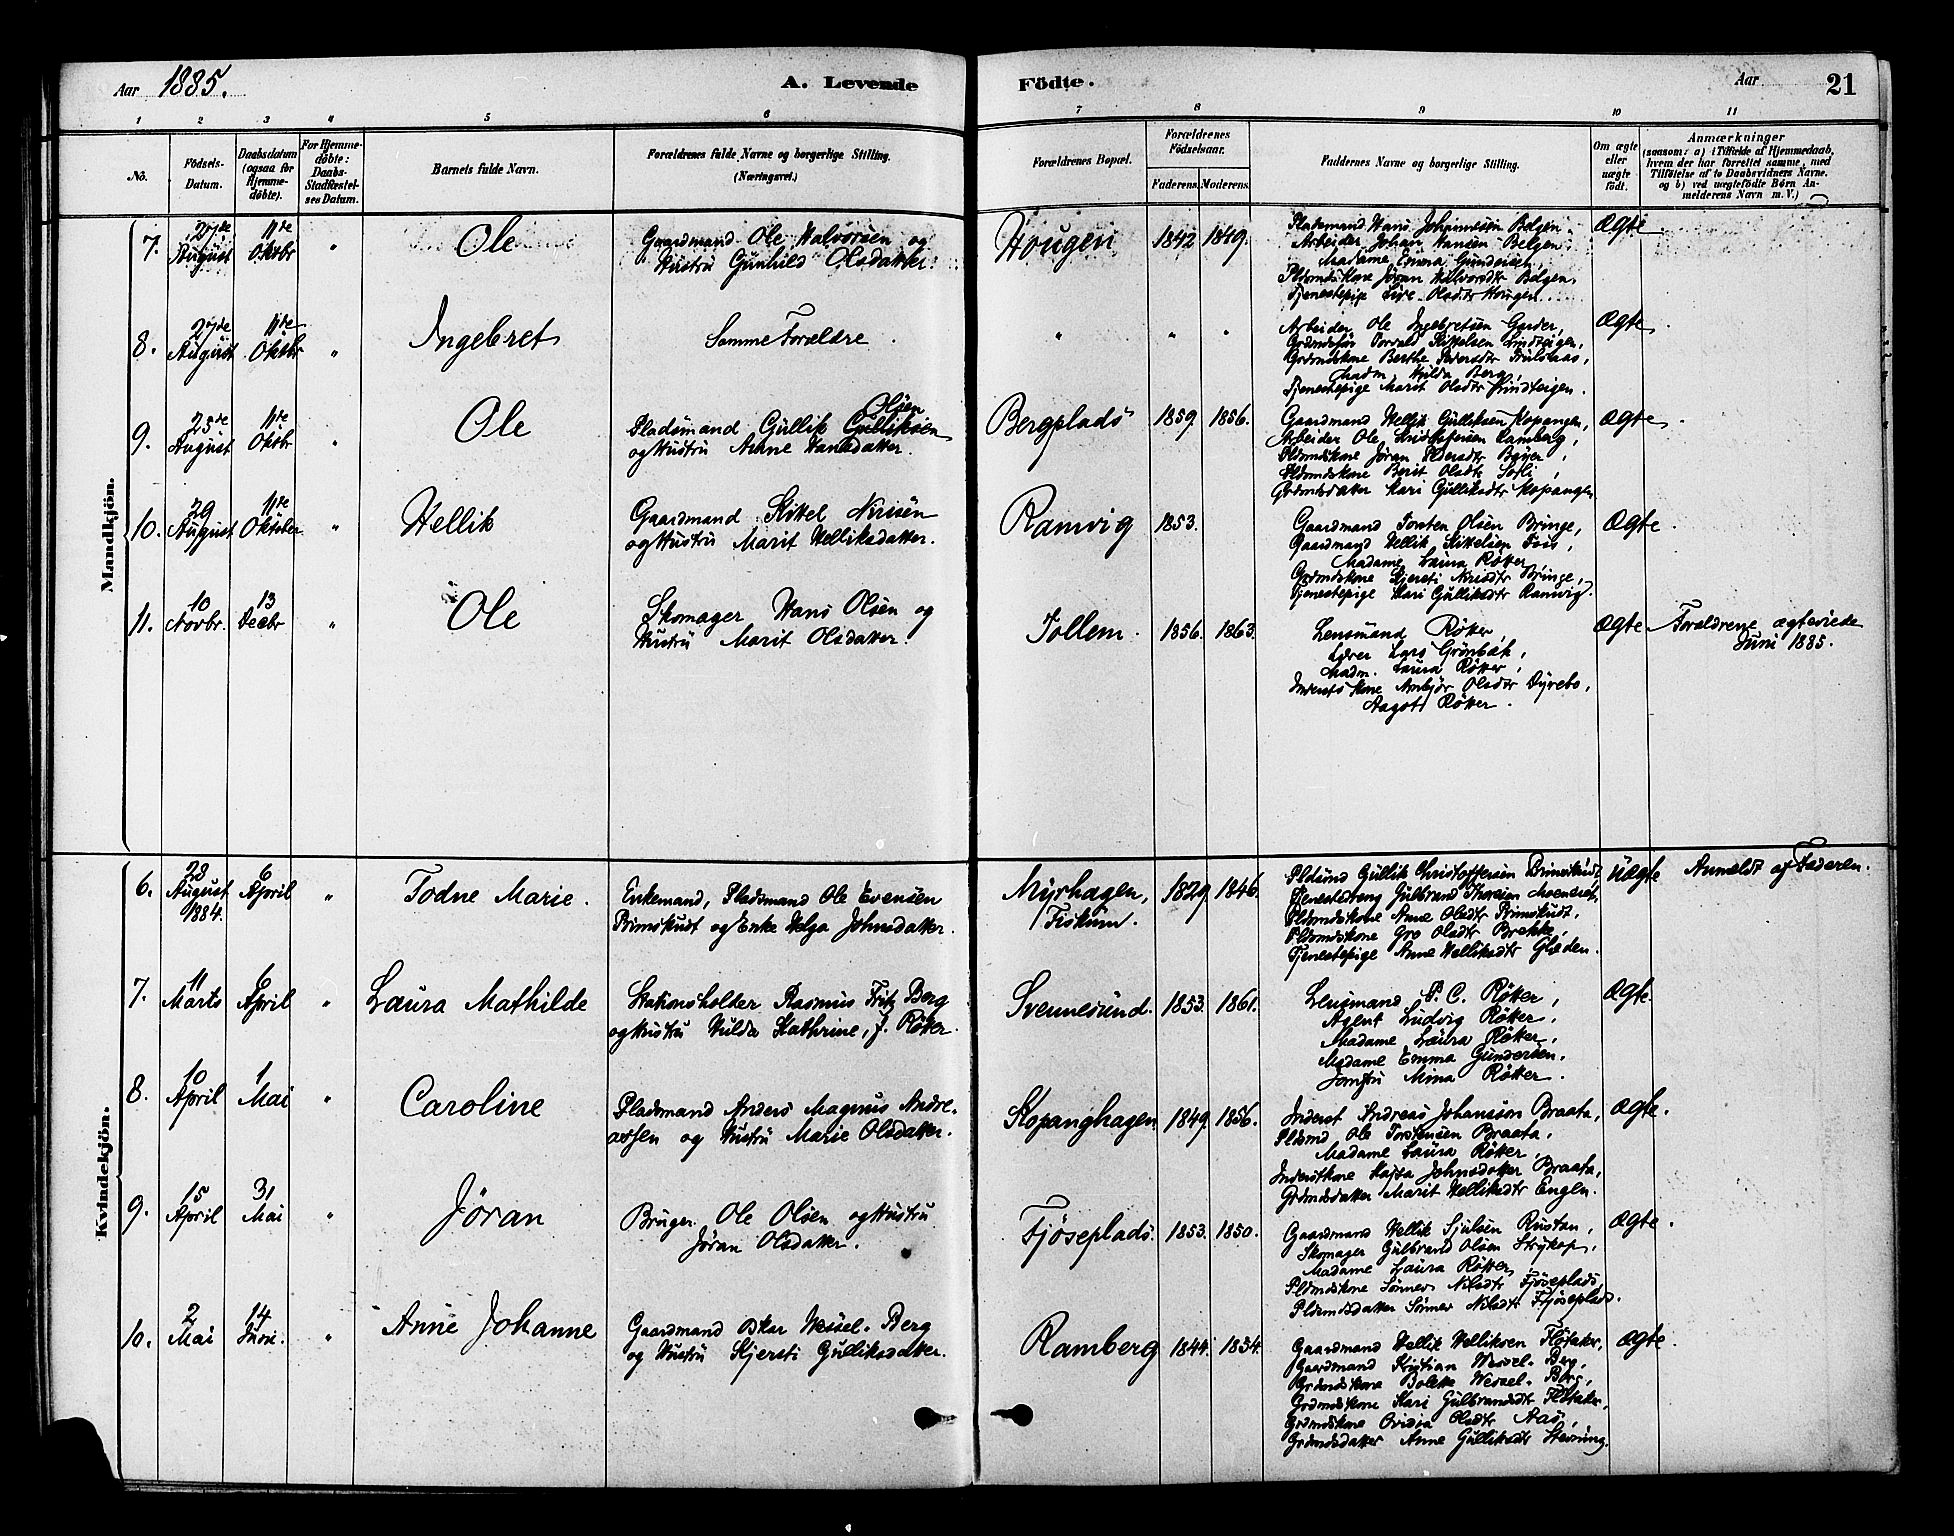 Aar 1885.
A. Levende
Födte.
Aar
21
1 2 3 4 5 6
7 8 9 10 11
No.
Födsels-
Datum.
Daabsdatum
(ogsaa for
Hjemme-
döbte).
For Hjemme-
döbte:
Daabs-
Stadfæstel-
ses Datum.
Barnets fulde Navn.
Forældrenes fulde Navne og borgerlige Stilling.
(Næringsvei.)
Forældrenes Bopæl.
Forældrenes
Födselsaar.
Faderens.
Moderens.
Faddernes Navne og borgerlige Stilling.
Om ægte
eller
uægte
födt.
Anmærkninger
(saasom: a) i Tilfælde af Hjemmedaab,
hvem der har forrettet samme, med
Tilföielse af to Daabsvidners Navne.
og b) ved uægtefödte Börn An-
melderens Navn m. V.)
Mandkjön.
7.
27de
August
11te
Oktbr
"
Ole
Gaardmand Ole Halvorsen og
Hustru Gunhild Olsdatter.
Hougen
1842
1849.
Pladsmand Hans Johannesen Bølgen.
Arbeider Johan Hansen Bølgen.
Madame Emma Gundersen
Pldsmdskone Jøran Halvorsdtr Bølgen.
Tjenestepige Live Olsdtr Hougen.
Ægte
8.
27de
August
11te
Oktbr
"
Ingebret
Samme Forældre
"
"
"
Arbeider Ole Ingebretsen Garder,
Grdmdskone Berthe Pedersdtr
Madm. Hilda Berg,
Tjenestepige Marit Olsdtr
Ægte.
9.
25de
August
11te
Oktbr
"
Ole
Pladsmand Gullik Gulliksen Olsen
og Hustru Anne Hansdatter.
Bergplads
1859
1856.
Gaardmand Hellik Gulliksen Kopangen,
Arbeider Ole Kristofersen Ramberg,
Pldsmdskone Jøran Pedersdtr
Pldsmdskone Berit Olsdtr
Grdmdsdatter Kari Gulliksdtr Kopangen
Ægte.
10.
29
August
11te
Oktober
"
Hellik
Gaardmand Kittel Nirisen
og Hustru Marit Helliksdatter.
Ramvig
1853.
Gaardmand Torsten Olsen Bringe,
Gaardmand Hellik Kittelsen Foss,
Madame Laura Røtter
Grdmdskone Kjersti Nirisdtr Bringe,
Tjenestepige Kari Gulliksdtr Ramvig.
Ægte.
11.
10
Novbr.
13
Decbr
"
Ole
Skomager Hans Olsen og
Hustru Marit Olsdatter.
Tollem.
1856.
1863.
Lensmand Røtter,
Lærer Lars Grönbæk,
Madm. Laura Røtter,
Inderstskone Ambjør Olsdtr Dyrebo,
Aagot Røtter.
Ægte
Forældrene ægteviede
Juni 1885.
Kvindekjön.
6.
28
August
1884.
6
April
"
Todne Marie.
Enkemand, Pladsmand Ole Evensen
Primskudt og Enke Helga Johnsdatter.
Myrhagen,
Fiskum.
1829.
1846.
Pldsmd Gullik Christoffersen Primskudt,
Tjenestedreng Gulbrand
Pldsmdskone Anne Olsdtr Primskudt,
Pldsmdskone Gro Olsdtr Brekke,
Tjenestepige Anne Helliksdtr Glæden.
Uægte
Anmeldt af Faderen.
7.
11
Marts
6
April
"
Laura Mathilde
Stationsholder Rasmus Fritz Berg
og Hustru Hulda Kathrine, f. Røtter.
Svennesund.
1853.
1861.
Lensmand P. C. Røtter,
Agent Ludvig Røtter,
Madame Laura Røtter,
Madame Emma Gundersen.
Jomfru Mina Røtter.
Ægte.
8.
10
April
1
Mai
"
Caroline
Pladsmand Anders Magnus Andre-
assen og Hustru Marie Olsdatter.
Kopanghagen
1849.
1856.
Inderst Andreas Johansson Braata,
Pldsmd Ole Torstensen Braata,
Madame Laura Røtter,
Inderstkone Kajsa Johnsdatter Braata,
Grdmdsdatter Marit Helliksdtr Englen.
Ægte.
9.
15
April
31
Mai
"
Jøran
Bruger Ole Olsen og Hustru
Jøran Olsdatter.
Fjøseplads.
1853.
1850.
Gaardmand Hellik Sjulsen Rustan,
Skomager Gulbrand Olsen
Madame Laura Røtter,
Pldsmdskone Sønnev Nilsdtr Fjøseplads
Pldsmdsdatter Sønnev Nilsdtr Fjøseplads.
Ægte.
10.
2
Mai
14
Juni.
"
Anne Johanne
Gaardmand Oskar Wessel-Berg
og Hustru Kjersti Gulliksdatter.
Ramberg
1844.
1854.
Gaardmand Hellik Helliksen Fløtaker,
Gaardmand Kristian Wessel-Berg,
Grdmdskone Bolette Wessel-Berg,
Grdmdskone Kari Gulbrandsdtr Fløtaker,
Grdmdskone Ovidia Olsdtr Aas,
Grdmdsdatter Anne Gulliksdtr Stevning.
Ægte.